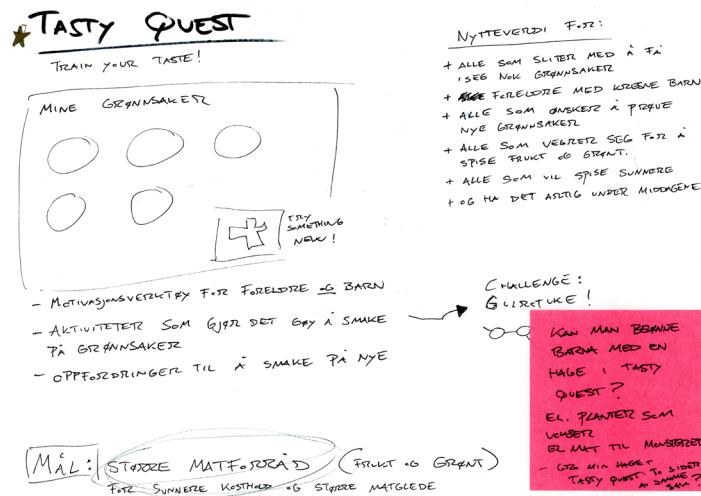 TASTY QUEST
TRAIN YOUR TASTE!
MINE GRØNNSAKER
TRY
SOMETHING
NEW!
- MOTIVASJONSVERKTØY FOR FORELDRE OG BARN
- AKTIVITETER SOM GJØR DET GØY Å SMAKE
PÅ GRØNNSAKER
- OPPFORDRINGER TIL Å SMAKE PÅ NYE
MÅL: STØRRE MATFORRÅD (FRUKT OG GRØNT)
FOR SUNNERE KOSTHOLD OG STØRRE MATGLEDE
NYTTEVERDI FOR:
+ ALLE SOM SLITER MED Å FÅ
I SEG NOK GRØNNSAKER
+ FORELDRE MED KRESNE BARN
+ ALLE SOM ØNSKER Å PRØVE
NYE GRØNNSAKER
+ ALLE SOM VEGRER SEG FOR Å
SPISE FRUKT OG GRØNT.
+ ALLE SOM VIL SPISE SUNNERE
+ OG HA DET ARTIG UNDER MIDDAGENE
CHALLENGE:
GULROTUKE!
KAN MAN BELØNNE
BARNA MED EN
HAGE I TASTY
QUEST?
EL. PLANTER SOM
VOKSER
EL MAT TIL MONSTERET
MIN HAGE &
TASTY QUEST: TO SIDER
AV SAMME
SAK?